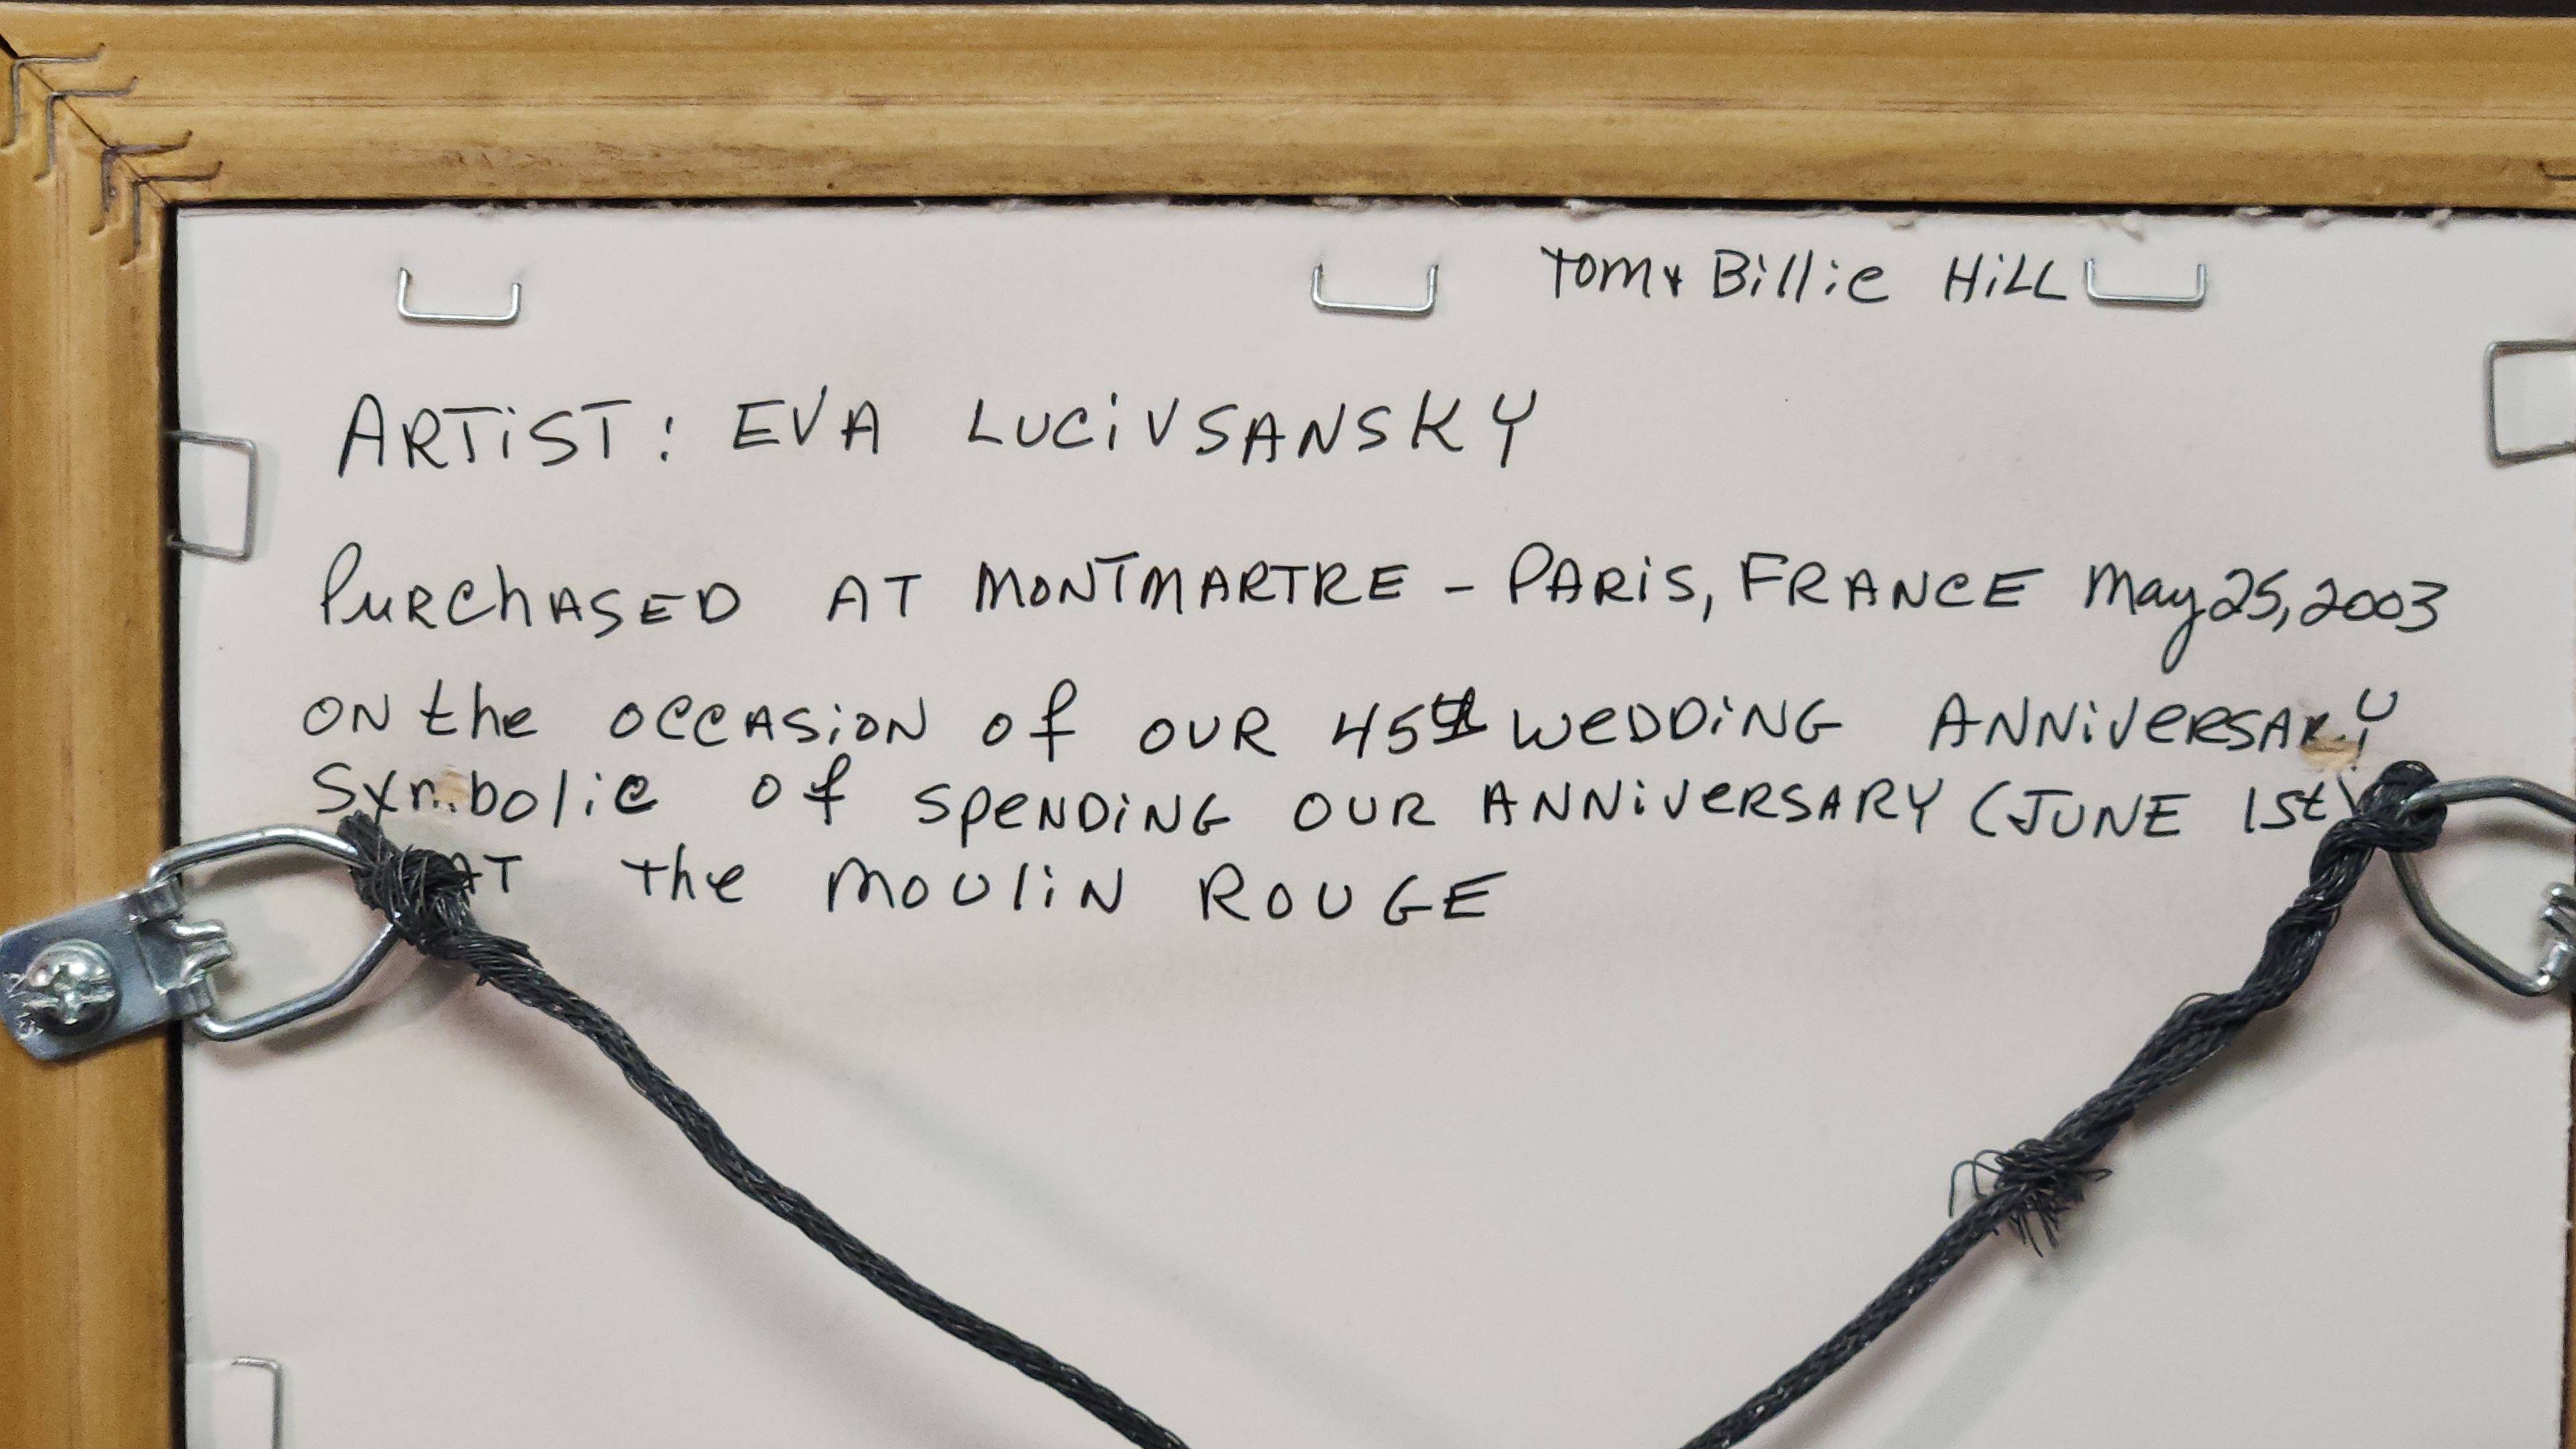 Tom & Billie Hill
ARTIST: EVA LUCIVSANSKY
PURCHASED AT MONTMARTRE - PARIS, FRANCE May 25, 2003
ON the OCCASION of OUR 45th WEDDING ANNIVERSARY
Symbolic of SPENDING OUR ANNIVERSARY (JUNE 1st)
AT the MOULIN ROUGE